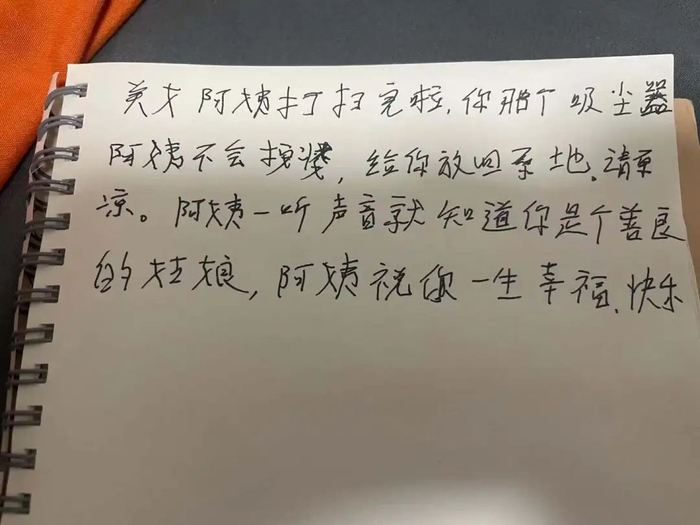 美才 阿姨打扫完啦，你那个吸尘器
阿姨不会换袋，给你放回原地。请原
凉。阿姨一听声音就知道你是个善良
的姑娘，阿姨祝你一生幸福．快乐